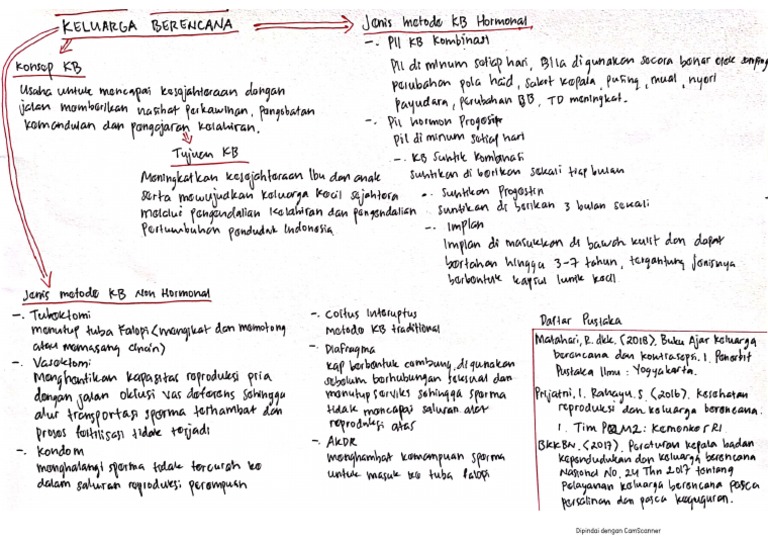 KELUARGA BERENCANA
Konsep KB
Usaha untuk mencapai kesejahteraan dengan
jalan memberikan nasihat perkawinan, pengobatan
kemandulan dan pengajaran kelahiran.
Tujuan KB
Meningkatkan kesejahteraan Ibu dan anak
serta mewujudkan keluarga kecil sejahtera
melalui pengendalian kelahiran dan pengendalian
pertumbuhan penduduk Indonesia
Jenis metode KB Hormonal
-. Pil KB Kombinasi
Pil di minum setiap hari, Bila di gunakan secara benar efek samping
perubahan pola haid, sakit kepala, pusing, mual, nyeri
payudara, perubahan BB, TD meningkat.
-. Pil hormon Progestin
Pil di minum setiap hari
-. KB Suntik Kombinasi
Suntikan di berikan sekali tiap bulan
-. Suntikan Progestin
Suntikan di berikan 3 bulan sekali
-. Implan
Implan di masukkan di bawah kulit dan dapat
bertahan hingga 3-7 tahun, tergantung jenisnya
berbentuk kapsul lunik kecil
Jenis metode KB Non Hormonal
-. Tubektomi
menutup tuba Falopi (mengikat dan memotong
atau memasang cincin)
-. Vasektomi
Menghentikan kapasitas reproduksi pria
dengan jalan oklusi vas deferens sehingga
alur transportasi sperma terhambat dan
proses fertilisasi tidak terjadi
-. Kondom
menghalangi sperma tidak tercurah ke
dalam saluran reproduksi perempuan
-. Coitus Interuptus
Metode KB traditional
-. Diafragma
kap berbentuk cembung, di gunakan
sebelum berhubungan seksual dan
menutup serviks sehingga sperma
tidak mencapai saluran alat
reproduksi atas
-. AKDR
menghambat kemampuan sperma
untuk masuk ke tuba falopi
Daftar Pustaka
Matahari, R. dkk. (2018). Buku Ajar keluarga
berencana dan kontrasepsi. 1. Penerbit
Pustaka Ilmu : Yogyakarta.
Prijatni, I. Rahayu. S. (2016). Kesehatan
reproduksi dan keluarga berencana.
1. Tim P2M2: Kemenkes RI
BKKBN. (2017). Peraturan kepala badan
kependudukan dan keluarga berencana
Nasional No. 24 Thn 2017 tentang
Pelayanan keluarga berencana pasca
persalinan dan pasca keguguran.
Dipindai dengan CamScanner